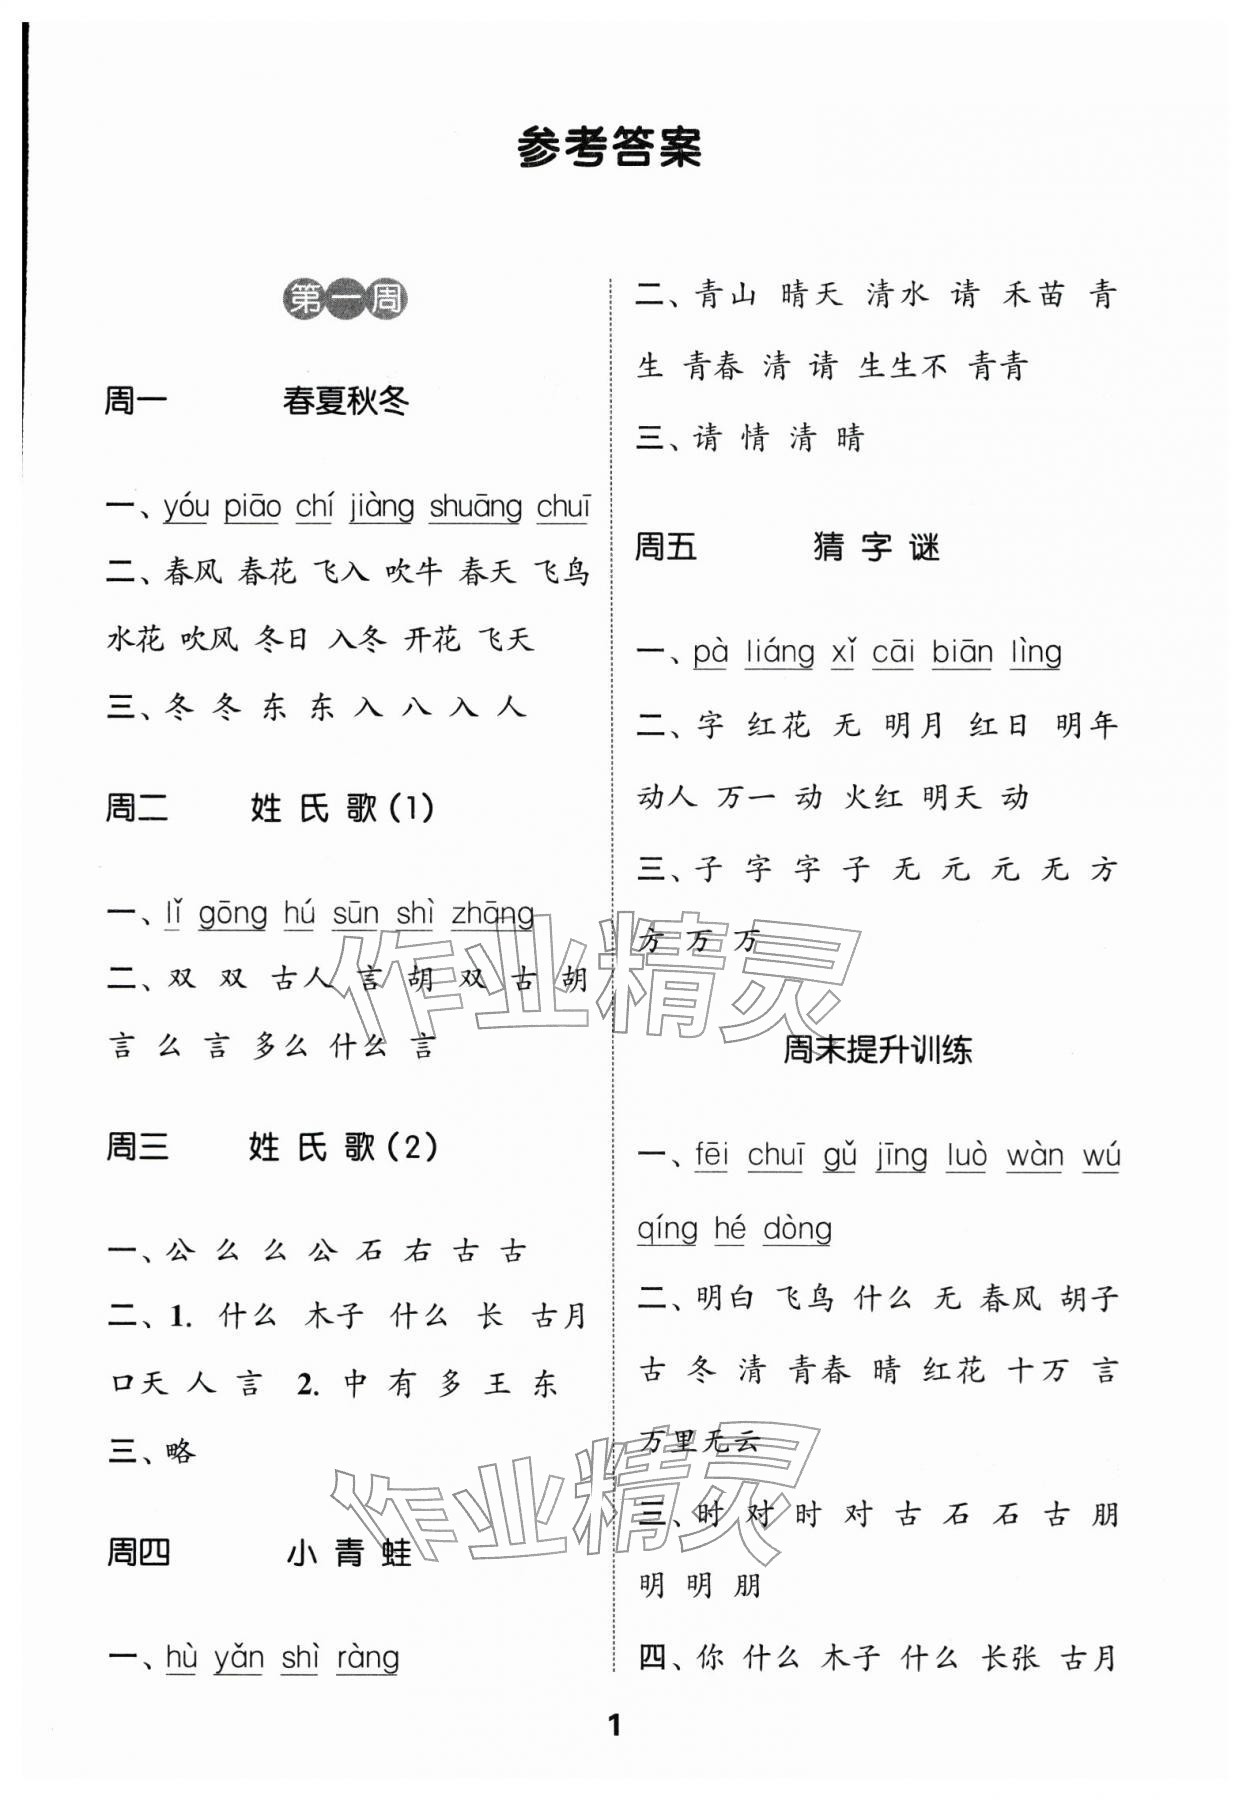 参考答案
第一周
周一 春夏秋冬
一、yóu piāo chí jiàng shuāng chuī
二、春风 春花 飞入 吹牛 春天 飞鸟
水花 吹风 冬日 入冬 开花 飞天
三、冬 冬 东 东 入 八 入 人
周二 姓氏歌(1)
一、lǐ gōng hú sūn shì zhāng
二、双 双 古人 言 胡 双 古 胡
言 么 言 多么 什么 言
周三 姓氏歌(2)
一、公 么 么 公 石 右 古 古
二、1. 什么 木子 什么 长 古月
口天 人 言 2. 中 有 多 王 东
三、略
周四 小青蛙
一、hù yǎn shì ràng
二、青山 晴天 清水 请 禾苗 青
生 青春 清 请 生生不 青青
三、请 情 清 晴
周五 猜字谜
一、pà liáng xǐ cāi biān lìng
二、字 红花 无 明月 红日 明年
动人 万一 动 火红 明天 动
三、子 字 字 子 无 元 元 无 方
方 万 万
周末提升训练
一、fēi chuī gǔ jīng luò wàn wú
qíng hé dòng
二、明白 飞鸟 什么 无 春风 胡子
古 冬 清 青春 晴 红花 十万 言
万里无云
三、时 对 时 对 古 石 石 古 朋
明 明 朋
四、你 什么 木子 什么 长张 古月
1
作业精灵
作业精灵